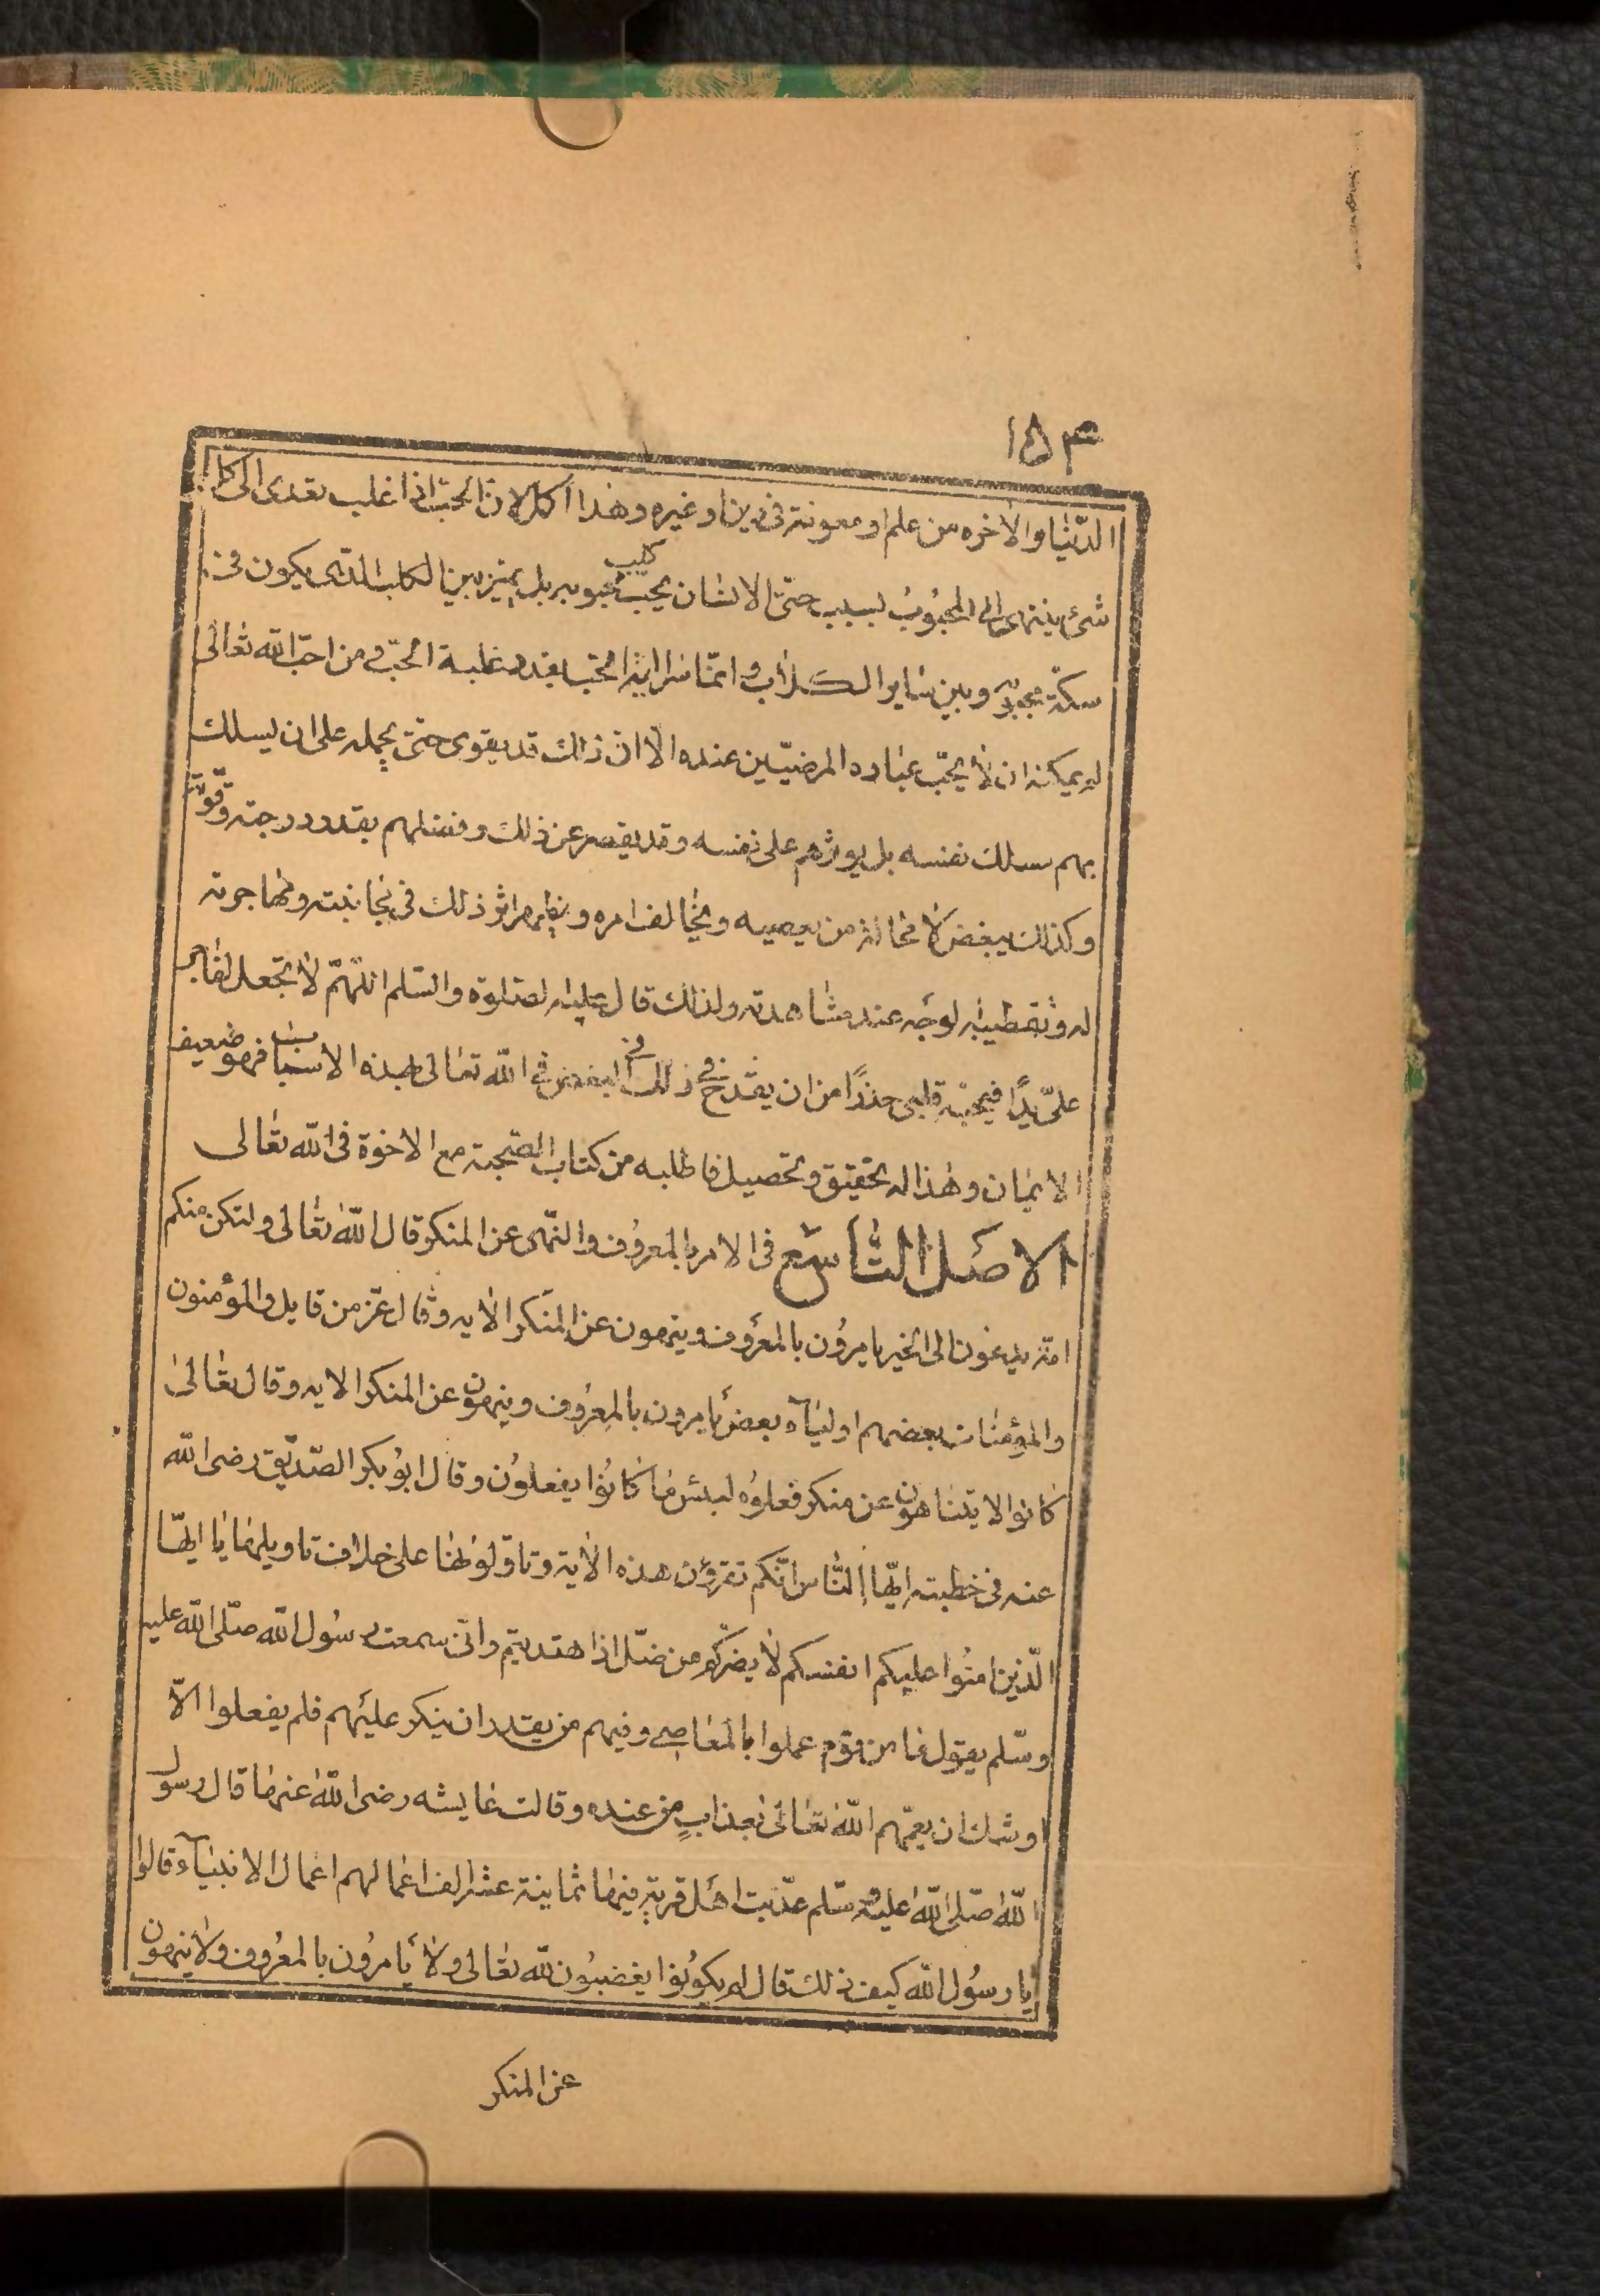 ١٥٤
الدّنيا والاخره من علم او معونة فى دين او غيره وهذا اكمل لان الحبّ اذا غلب تعدى الى كل
شىء ينتمى الى المحبوب بسبب حتى الانسان يحب كليب محبوبه بل يميز بين الكلب الذى يكون فى
سكة محبوبه وبين ساير الكلاب وانما سراية الحب بقدر غلبة الحبّ ومن احبّ الله تعالى
لم يمكنه ان لا يحبّ عباده المرضيّين عنده الّا انّ ذالك قد يقوى حتى يحمله على ان يسلك
بهم مسلك نفسه بل يوثرهم على نفسه وقد يقصر عن ذلك وفضلهم بقدر درجته وقوّته
وكذلك يبغض لا محالة من يعصيه ويخالف امره ويظهر اثر ذلك فى مجانبته ومهاجرته
له وتقطيبه لوجهه عند مشاهدته ولذلك قال عليه الصلوة والسّلم اللهمّ لا تجعل لفاجر
علىّ يدًا فيحبّه قلبى حذرًا من ان يقدح فى ذلك فى البغض فى الله تعالى لهذه الاسباب فهو ضعيف
الايمان وهذا له تحقيق وتحصيل فاطلبه من كتاب الصّحبة مع الاخوة فى الله تعالى
الاصل التاسع فى الامر بالمعروف والنّهى عن المنكر قال الله تعالى ولتكن منكم
امّة يدعون الى الخير يامرون بالمعروف وينهون عن المنكر الايه وقال عزّ من قايل والمؤمنون
والمؤمنات بعضهم اولياء بعض يامرون بالمعروف وينهون عن المنكر الايه وقال تعالى
كانوا لا يتناهون عن منكر فعلوه لبئس ما كانوا يفعلون وقال ابو بكر الصّدّيق رضى الله
عنه فى خطبته ايّها النّاس انّكم تقرؤن هذه الاية وتاوّلونها على خلاف تاويلها يا ايّها
الّذين امنوا عليكم انفسكم لا يضركم من ضلّ اذا هتديتم وانى سمعت رسول الله صلّى الله عليه
وسلم يقول ما من قوم عملوا بالمعاصى وفيهم من يقدر ان ينكر عليهم فلم يفعلوا الّا
اوشك ان يعمّهم الله تعالى بعذاب من عنده وقالت عايشه رضى الله عنها قال رسول
الله صلّى الله عليه وسّلم عذّبت اهل قرية فيها ثمانية عشر الف اعمالهم اعمال الانبياء قالوا
يا رسول الله كيف ذلك قال لم يكونوا يغضبون لله تعالى ولا يامرون بالمعروف ولا ينهون
عن المنكر